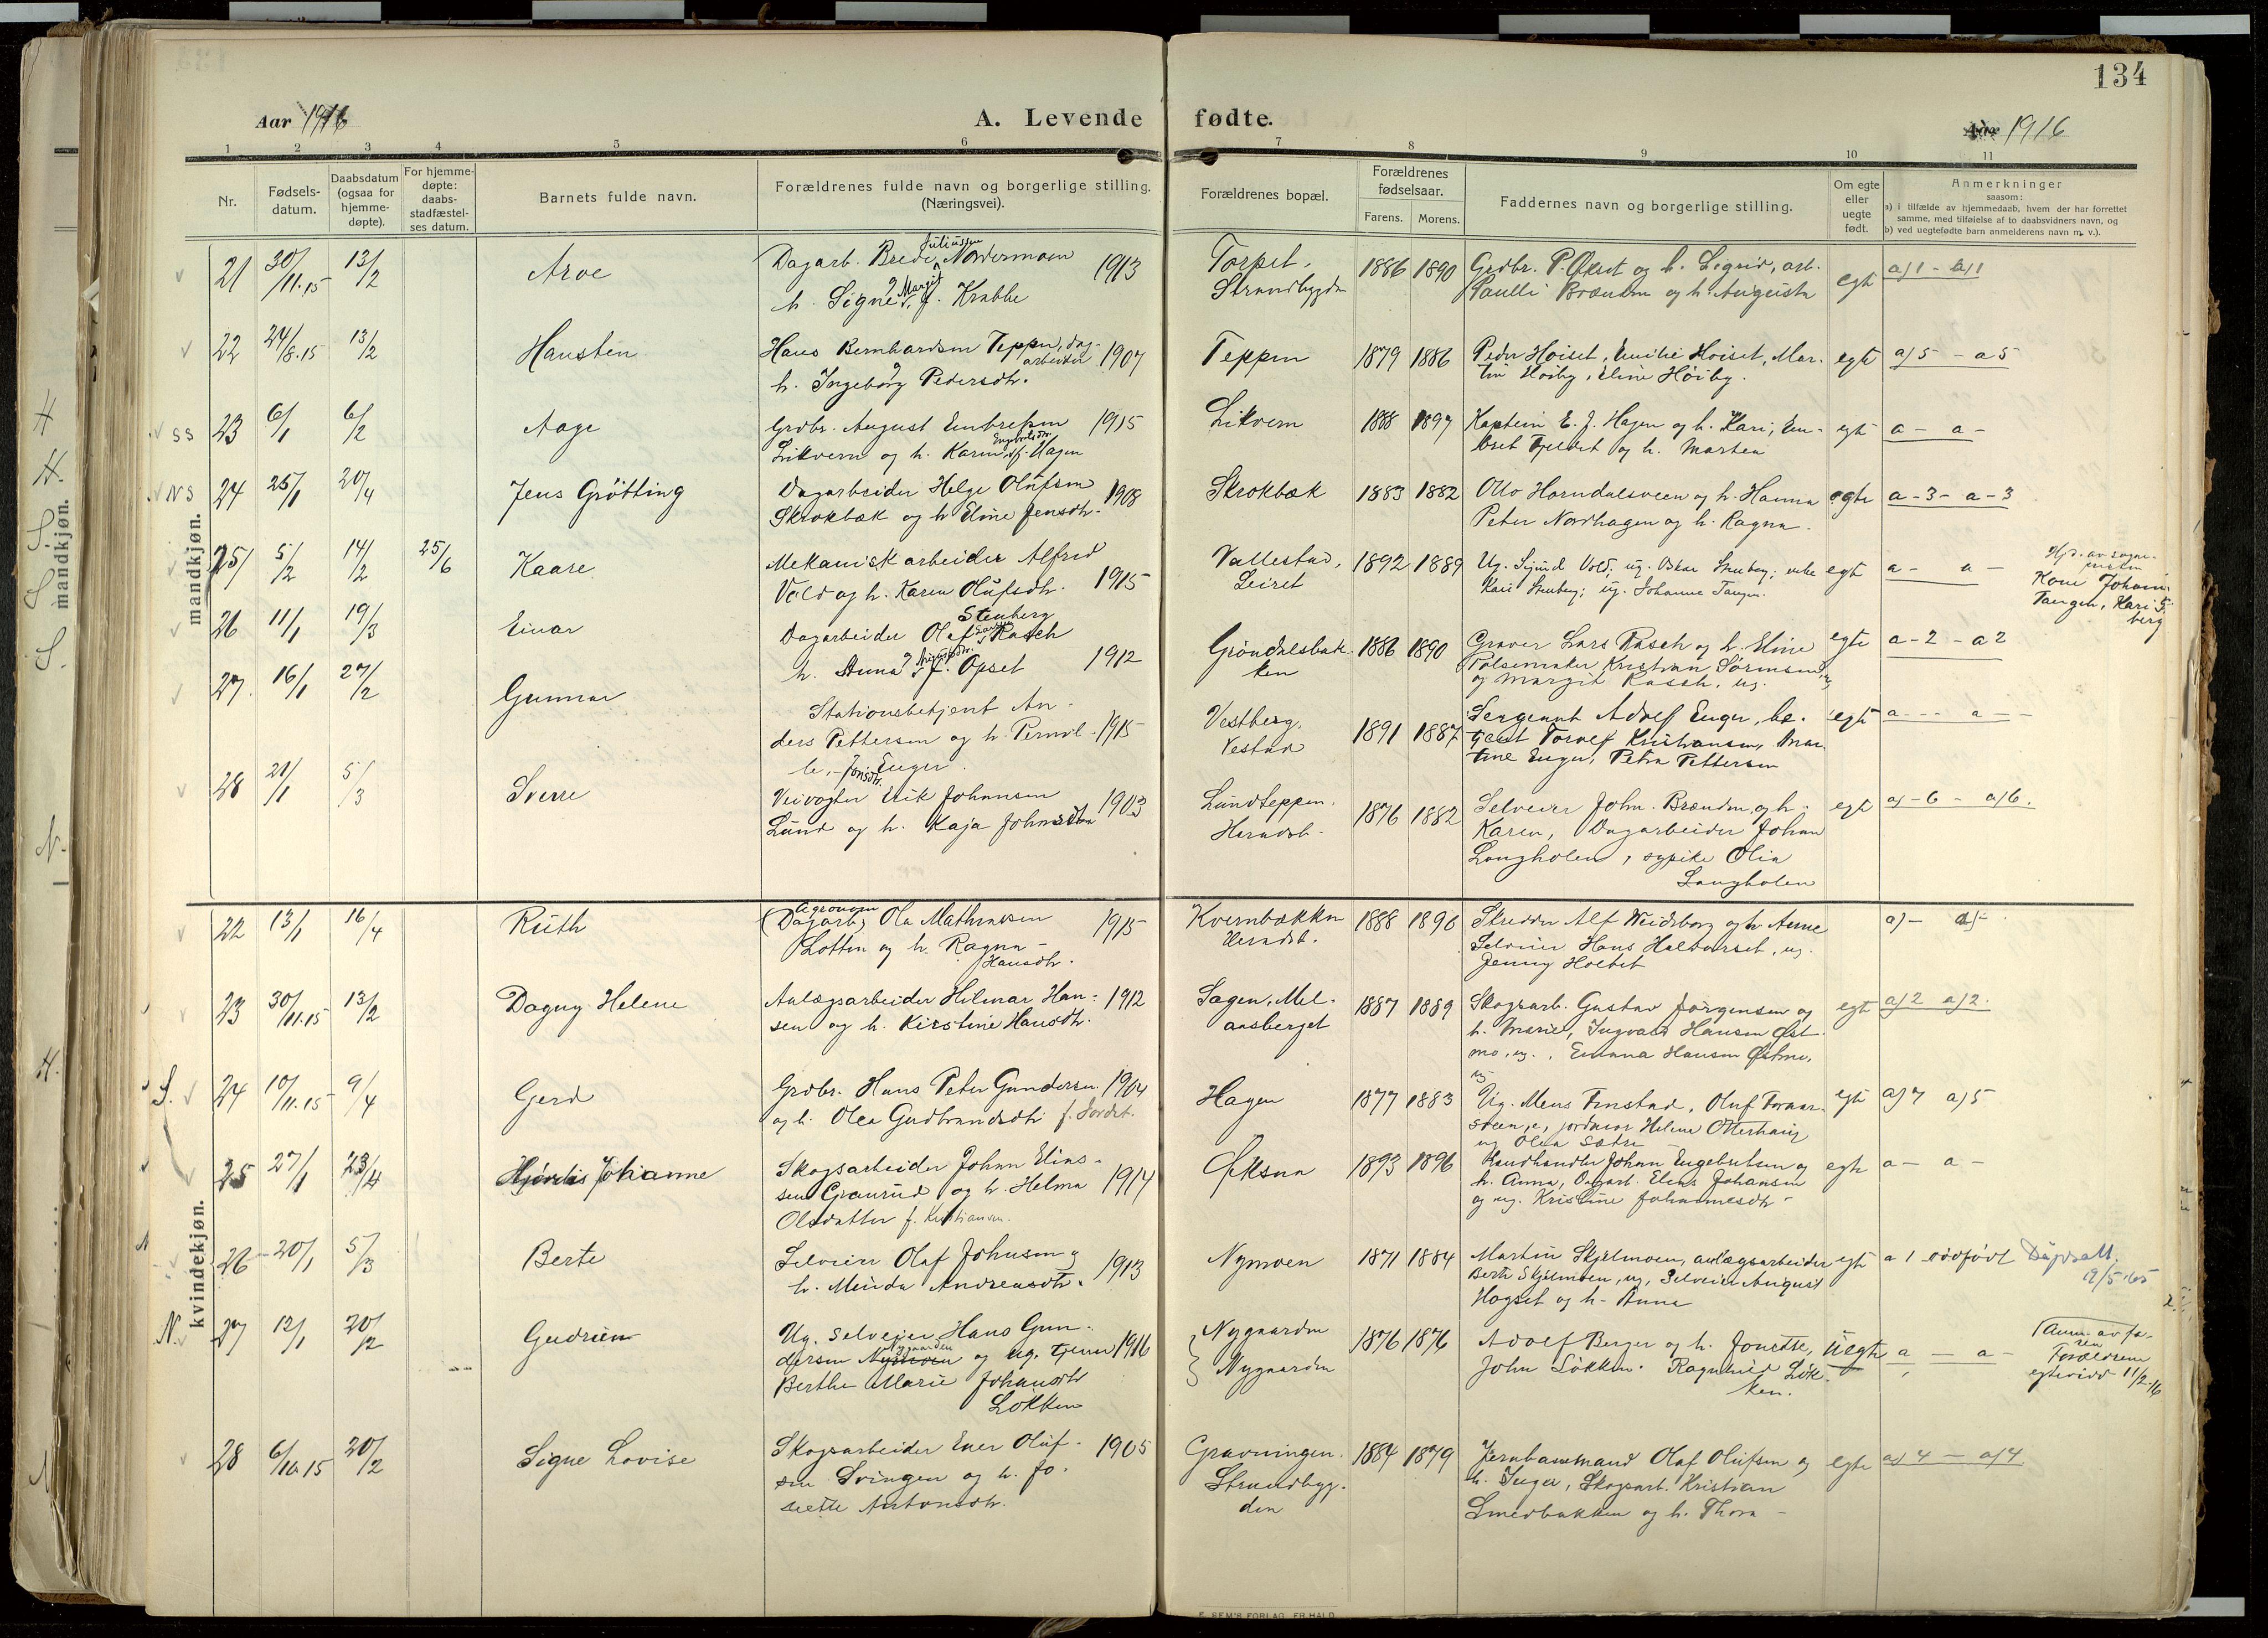 134
Aar 1916
A. Levende fødte.
Aar 1916
1 2 3 4 5 6 7 8 9 10 11
Nr.
Fødsels-
datum.
Daabsdatum
(ogsaa for
hjemme-
døpte).
For hjemme-
døpte:
daabs-
stadfæstel-
ses datum.
Barnets fulde navn.
Forældrenes fulde navn og borgerlige stilling.
(Næringsvei).
Forældrenes bopæl.
Forældrenes
fødselsaar.
Farens. Morens.
Faddernes navn og borgerlige stilling.
Om egte
eller
uegte
født.
Anmerkninger
saasom:
a) i tilfælde av hjemmedaab, hvem der har forrettet
samme, med tilføielse af to daabsvidners navn, og
b) ved uegtefødte barn anmelderens navn m. v.).
mandkjøn.
21 30/11.15 13/2 Arve
Juliussen
Dagarb. Brede Nordermoen 1913
h. Signe Margit f. Krabbe
Torpet.
Strandbygda
1886 1890
Grdbr. P. Øksnt og h. Sigrid, arb.
Paulli Brænden og h. Augusta
egte
a) 1 - a) 1
22 24/8.15 13/2 Hansten
Hans Bernhardsen Teppen, dag-
arbeider 1907
h. Ingeborg Pedersdtr.
Teppen
1879 1886
Peder Høiset, Emilie Høiset, Mar-
tin Høiby, Eline Høiby.
egte
a) 5 - a 5
SS 23 6/1 6/2 Aage
Grdbr. August Embretsen 1915
Likvern og h. Karen Engebretsdtr. f. Hagen
Likvern
1888 1897
Kaptein E. J. Hagen og h. Kari, Em-
bret Tjeldet og h. Marten
egte
a - a -
NS 24 25/1 20/4 Jens Grötting
Dagarbeider Helge Olufsen 1908
Skrokbæk og h Eline Jensdtr.
Skrokbæk
1883 1882
Otto Horndalsveen og h. Hanna
Peter Nordhagen og h. Ragna.
egte
a - 3 - a - 3
25 5/2 14/2 25/6 Kaare
Mekanisk arbeider Alfred
Vold og h. Karen Olufsdtr. 1915
Stenberg
Vallestad,
Leiret
1892 1889
Ug. Sigurd Vold, ug. Oskar Stenberg; enke
Kari Stenberg; ug. Johanne Tangen.
egte
a - a -
Hjd. av sogne-
presten
Kone Johanne
Tangen, Kari S.
berg
26 11/1 19/3 Einar
Dagarbeider Olaf Larsen Rasch
h. Anna f. Opset 1912
Gröndalsbak-
ken
1886 1890
Graver Lars Rasch og h. Eline
Pølsemaker Kristian Sörensen, ug
og Margit Rasch, ug.
egte
a - 2 - a 2
27 16/1 27/2 Gunnar
Stationsbetjent An-
ders Pettersen og h. Pernil- 1915
le, Jonsdtr. Enger.
Vestberg,
Vestad
1891 1887
Sergeant Adolf Enger, be-
tjent Torolf Kristiansen, Mar-
tine Enger, Petra Pettersen
egte
a - - a -
28 21/1 5/3 Sverre
Veivogter Erik Johansen
Lund og h. Kaja Johnsdtr 1903
Lundteppen.
Heradsb.
1876 1882
Selveier John Brænden og h.
Karen, Dagarbeider Johan
Langholen, sypike Olia
Langholen
egte
a) - 6 - a) 6.
kvindekjøn.
22 13/1 16/4 Ruth
Agronom
(Dagarb) Ola Mathiassen 1915
Lotten og h. Ragna -
Hansdtr.
Kvernbækken
Heradsb.
1888 1890
Skredder Alf Weidsborg og h Anne
Selveier Hans Halvorset, ug.
Jenny Holtet
a) - a) -
23 30/11.15 13/2 Dagny Helene
Anlægsarbeider Hilmar Han- 1912
sen og h. Kirstine Hansdtr.
Sagen, Mel-
aasberget
1887 1889
Skogsarb. Gustav Jörgensen og
h. Marie, Ingvald Hansen Øst-
mo, ug., Emma Hansen Østmo,
ug
egte
a) 2 a) 2.
S. 24 10/11.15 9/4 Gerd
Grdbr. Hans Peter Gundersen 1904
og h. Olea Gudbrandsdtr f. Jordet.
Hagen
1877 1883
Ug. Mens Finstad, Oluf Fornar-
steen, e, jordmor Helene Otterhaug
ug Olea Sætre
egte
a) 7 a) 5
25 27/1 23/4 Hjördis Johanne
Skogsarbeider Johan Elias-
sen Granrud og h. Helma 1914
Olsdatter f. Kristiansen.
Øksna
1893 1896
Handhandler Johan Engebretsen og
h. Anna, Dagarb. Elias Johansen
og ug. Kristine Johannesdtr -
egte
a - a -
N 26 20/1 5/3 Berte
Selveier Olaf Johnsen og
h. Minda Andreasdtr. 1913
Nymoen
1871 1884
Martin Skjelmoen, anlægsarbeider
Berte Skjelmoen, ug, Selveier August
Hogset og h. Anna
egte
a 1 dödfödt
Dåpsatt.
19/5-65
N. 27 12/1 20/2 Gudrun
Ug. Selveier Hans Gun-
dersen Nymoen Nygaarden og ug. tjener 1916
Berthe Marie Johansdtr
Løkken
Nygaarden
Nygaarden
1876 1876
Adolf Berger og h. Jonette,
John Løkken. Ragnhild Løk-
ken.
Uegte
a - a -
Anm. av fa-
ren
Forældrene
egteviedd 11/2-16
28 6/10.15 20/2 Signe Lovise
Skogsarbeider Ener Oluf- 1905
sen Svingen og h. Jo-
sette Antonsdtr.
Gravningen.
Strandbyg-
den
1884 1879
Jernbanemand Olaf Olufsen og
h. Inger, Skogsarb. Kristian
Smedbakken og h. Thora -
egte
a) 4 - a) 4
E. SEM'S FORLAG, FR.HALD